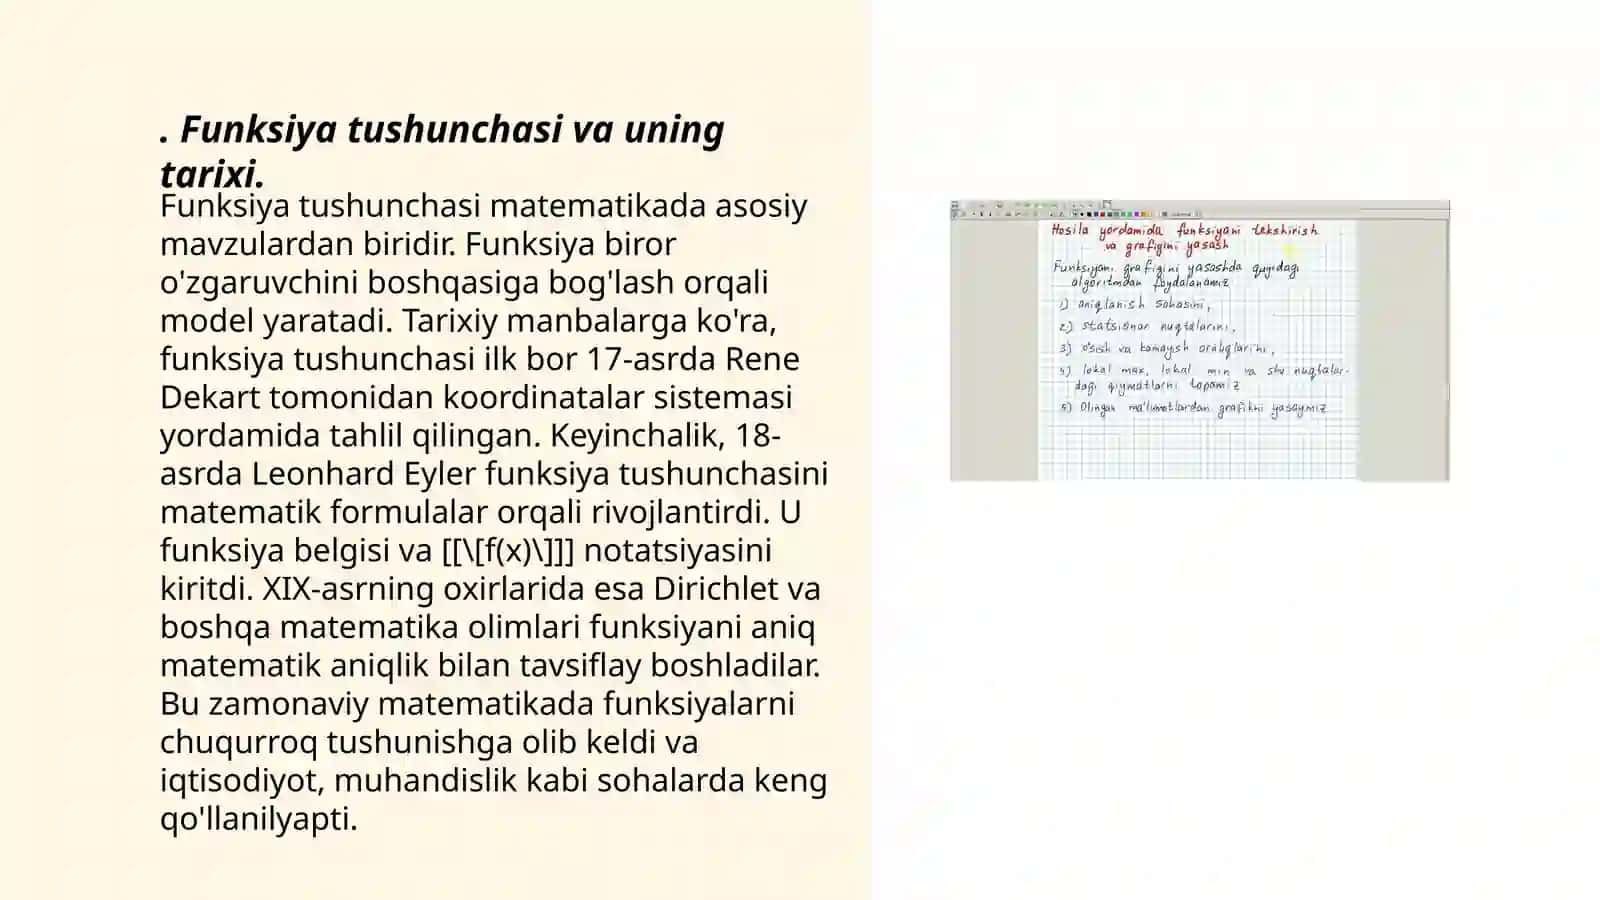 . Funksiya tushunchasi va uning
tarixi.
Funksiya tushunchasi matematikada asosiy
mavzulardan biridir. Funksiya biror
o'zgaruvchini boshqasiga bog'lash orqali
model yaratadi. Tarixiy manbalarga ko'ra,
funksiya tushunchasi ilk bor 17-asrda Rene
Dekart tomonidan koordinatalar sistemasi
yordamida tahlil qilingan. Keyinchalik, 18-
asrda Leonhard Eyler funksiya tushunchasini
matematik formulalar orqali rivojlantirdi. U
funksiya belgisi va [[\[f(x)\]]] notatsiyasini
kiritdi. XIX-asrning oxirlarida esa Dirichlet va
boshqa matematika olimlari funksiyani aniq
matematik aniqlik bilan tavsiflay boshladilar.
Bu zamonaviy matematikada funksiyalarni
chuqurroq tushunishga olib keldi va
iqtisodiyot, muhandislik kabi sohalarda keng
qo'llanilyapti.
Hosila yordamida funksiyani tekshirish
va grafigini yasash
Funksiyani grafigini yasashda quyidagi
algoritmdan foydalanamiz
1) aniqlanish sohasini,
2) statsionar nuqtalarini,
3) o'sish va kamayish oraliqlarini,
4) lokal max, lokal min va shu nuqtalar-
dagi qiymatlarni topamiz
5) Olingan ma'lumotlardan grafikni yasaymiz